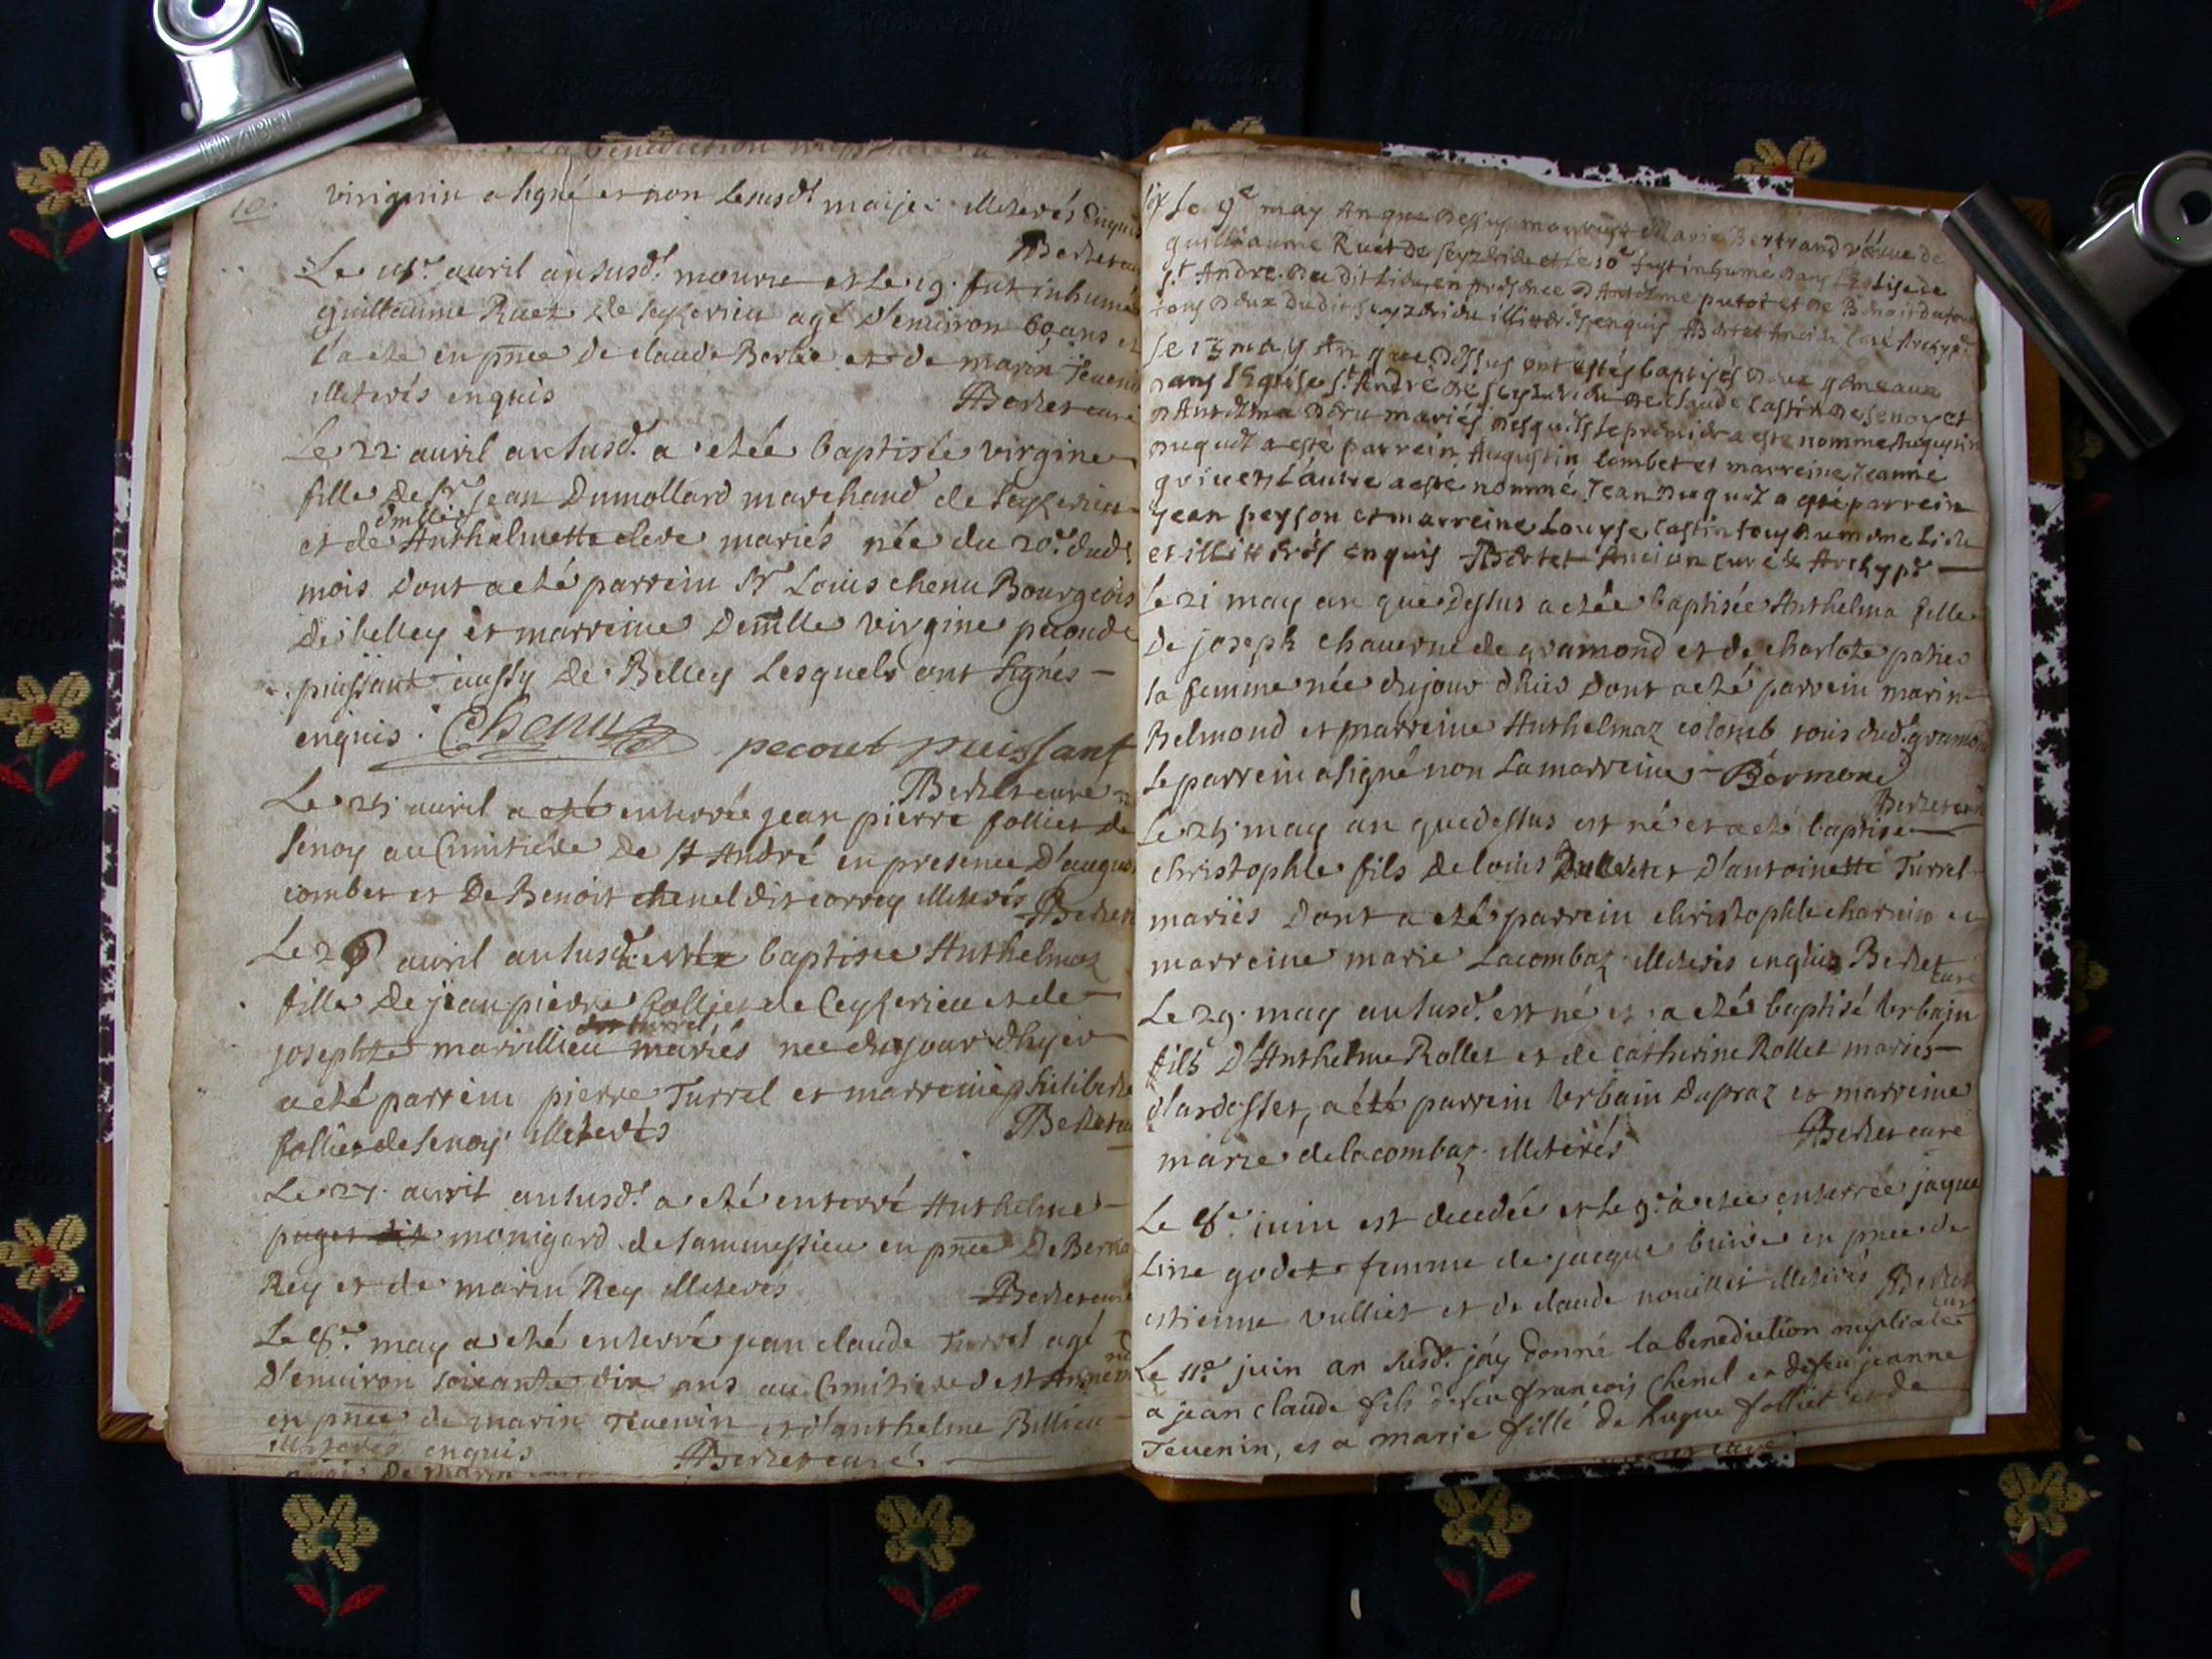 virignin a signé et non le susdt maije illiterés enquis
Bertet curé
Le avril an susdt mourut et le 19. fut inhumé
guillaume Ruet de seyzerieu agé d'environ 60 ans et
l'acte en pnce de claude Berlie et de marin Tevenin
illiterés enquis Bertet curé
Le 22 avril an susdt a etée baptisée virgine
fille de Sr jean Dumollard marchand de seyzerieu
et de Anthelmette clere mariés née du 20e dudt
mois dont a eté parrein Sr Louis chenu Bourgeois
de belley et marreine Demlle virgine pecoud
puissant aussy de Belley Lesquels ont signés
enquis. Chenu pecout puissant
Bertet curé
Le 25 avril a eté enterrée jean pierre folliet de
senoy au Cimitiere de St André en presence D'augus
combet et De Benoit chenel dit correy illiterés Bertet
Le 26 avril an susdt baptisée Anthelmaz
fille De jean pierre folliet de Ceyzerieu et de
josephte marvillieu mariés née du jour dhyer
a eté parrein pierre Turrel et marreine philiberte
folliet de senoy illiterés Bertet
Le 27. avril an susdt a eté enterré Anthelme
puget dit monigard de sammessieu en pnce De Berna
Rey et de marin Rey illiterés Bertet curé
Le 8e may a eté enterré jean claude Turrel agé
d'environ soixante dix ans au Cimitiere de st
en pnce de marin Tevenin et d'anthelme Billieu
illiterés enquis Bertet curé.
Le 9e may An que dessus mourust Marie Bertrand vesve de
guilliaume Ruet de seyzerieu et le 10e fust inhumé dans L'Eglise de
St André dudit Lieu en presence D Antelme putot et de Benoit
tous deux dudit seyzerieu illitteréz enquis Bertet Ancien Curé Archypr
Le 13 may An que dessus ont estés baptisés deux gemeaux
dans l'Eglise St André de seyzerieu de Claude Castin de Senoy et
d'Antelma mariés desquels le premier a este nommé Augustin
duquel a esté parrein Augustin Combet et marreine Jeanne
L'autre a esté nommé Jean duquel a esté parrein
Jean peyson et marreine Louyse Castin tous du mme lieu
et illitterés enquis Bertet Ancien curé & Archypr
Le 21 may an que dessus a etée baptisée Anthelma fille
De joseph chaverne de gramond et de charlote
sa femme née du jour dhier dont a eté parrein marin
Belmond et marreine Anthelmaz colomb tous dudt gramond
Le parrein a signé non La marreine Bermond
Bertet curé
Le 25 may an que dessus est né et a eté baptisé
christophle fils de louis et D'antoinette Turrel
mariés Dont a eté parrein christophle charvin et
marreine marie Lacombaz illiterés enquis Bertet
curé
Le 29. may an susdt est né et a eté baptisé Urbain
fils D'Anthelme Rollet et de catherine Rollet mariés
d'ardosset, a été parrein Urbain Dupraz et marreine
marie de lacombaz illiterés Bertet curé
Le 8e juin est decedée et le 9e a etée enterrée jaque
line godet femme de jacque buire en pnce de
estienne vulliet et de claude nouillet illiterés Bertet
curé
Le 11e juin an susdt j'ay donné la benediction nuptiale
a jean claude fils de feu françois Chenel et de feu jeanne
Tevenin, et a marie fille de hugue folliet et de